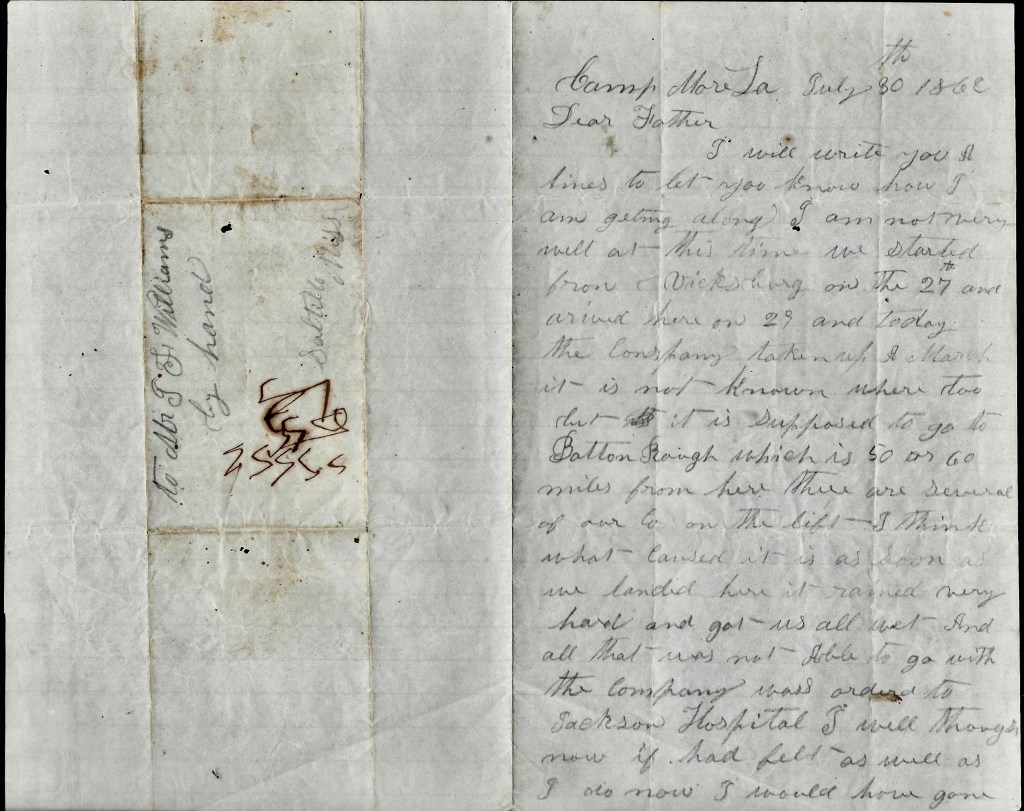 to Mr T S Williams
by hand
Saltillo Miss
Camp More La July 30th 1862
Dear Father
I will write you A
lines to let you know how I
am geting along I am not very
well at this time we started
from Vicksburg on the 27th and
arived here on 29 and today
the Conspany taken up A March
it is not known where too
but it is supposed to go to
Batton Rough which is 50 or 60
miles from here there are several
of our Co on the lift I think
what Caused it is as soon as
we landed here it rained very
hard and got us all wet And
all that was not Able to go with
the Company wass orderd to
Jackson Hospital I well though
now if had felt as well as
I do now I would have gone